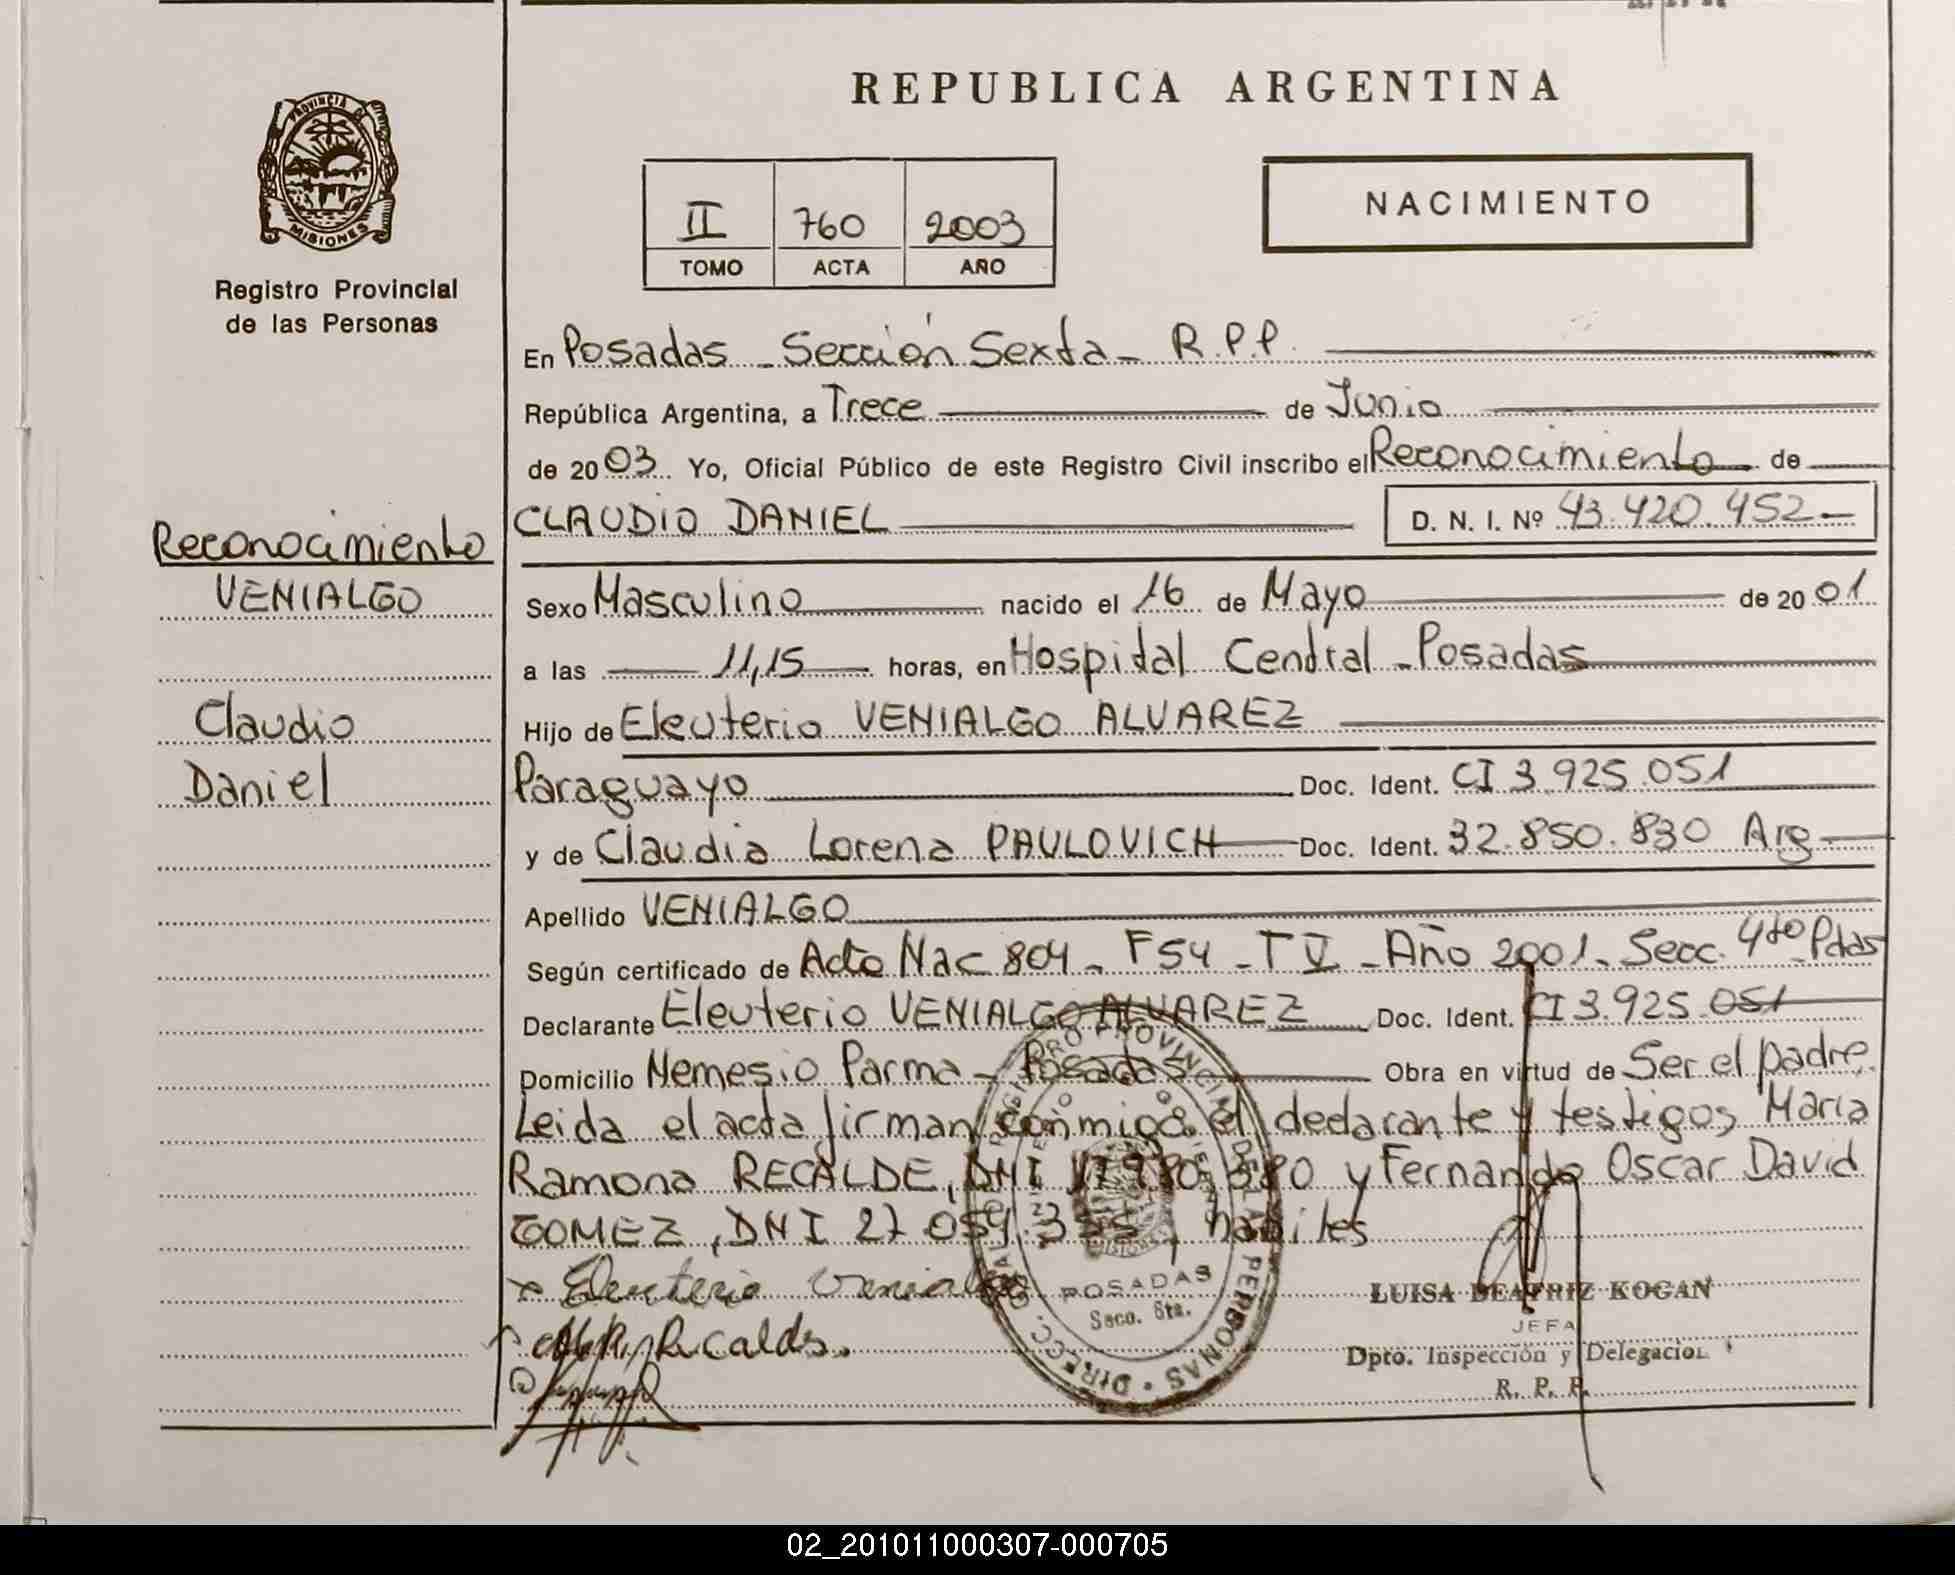 REPUBLICA ARGENTINA
PROVINCIA DE
MISIONES
Registro Provincial
de las Personas
II 760 2003
TOMO ACTA AÑO
NACIMIENTO
En Posadas - Sección Sexta - R.P.P.
República Argentina, a Trece de Junio
de 2003 Yo, Oficial Público de este Registro Civil inscribo el Reconocimiento de
CLAUDIO DANIEL D. N. I. Nº 43.420.452
Reconocimiento
VENIALGO
Claudio
Daniel
Sexo Masculino nacido el 16 de Mayo de 2001
a las 11,15 horas, en Hospital Central - Posadas
Hijo de Eleuterio VENIALGO ALVAREZ
Paraguayo Doc. Ident. CI 3.925.051
y de Claudia Lorena PAULOVICH Doc. Ident. 32.850.830 Arg
Apellido VENIALGO
Según certificado de Acta Nac 804 - F 54 - T V - Año 2001 - Secc. 4ta Pdas
Declarante Eleuterio VENIALGO ALVAREZ Doc. Ident. CI 3.925.051
Domicilio Nemesio Parma - Posadas Obra en virtud de Ser el padre.
Leida el acta firman conmigo el declarante y testigos Maria
Ramona RECALDE, DNI y Fernando Oscar David
GOMEZ, DNI 27.059. , habiles
Eleuterio Venialgo
Recalde.
DIRECC. GRAL. REGISTRO PROVINCIAL DE LAS PERSONAS
POSADAS
Secc. 6ta.
LUISA BEATRIZ KOGAN
JEFA
Dpto. Inspección y Delegación
R. P. P.
02_201011000307-000705